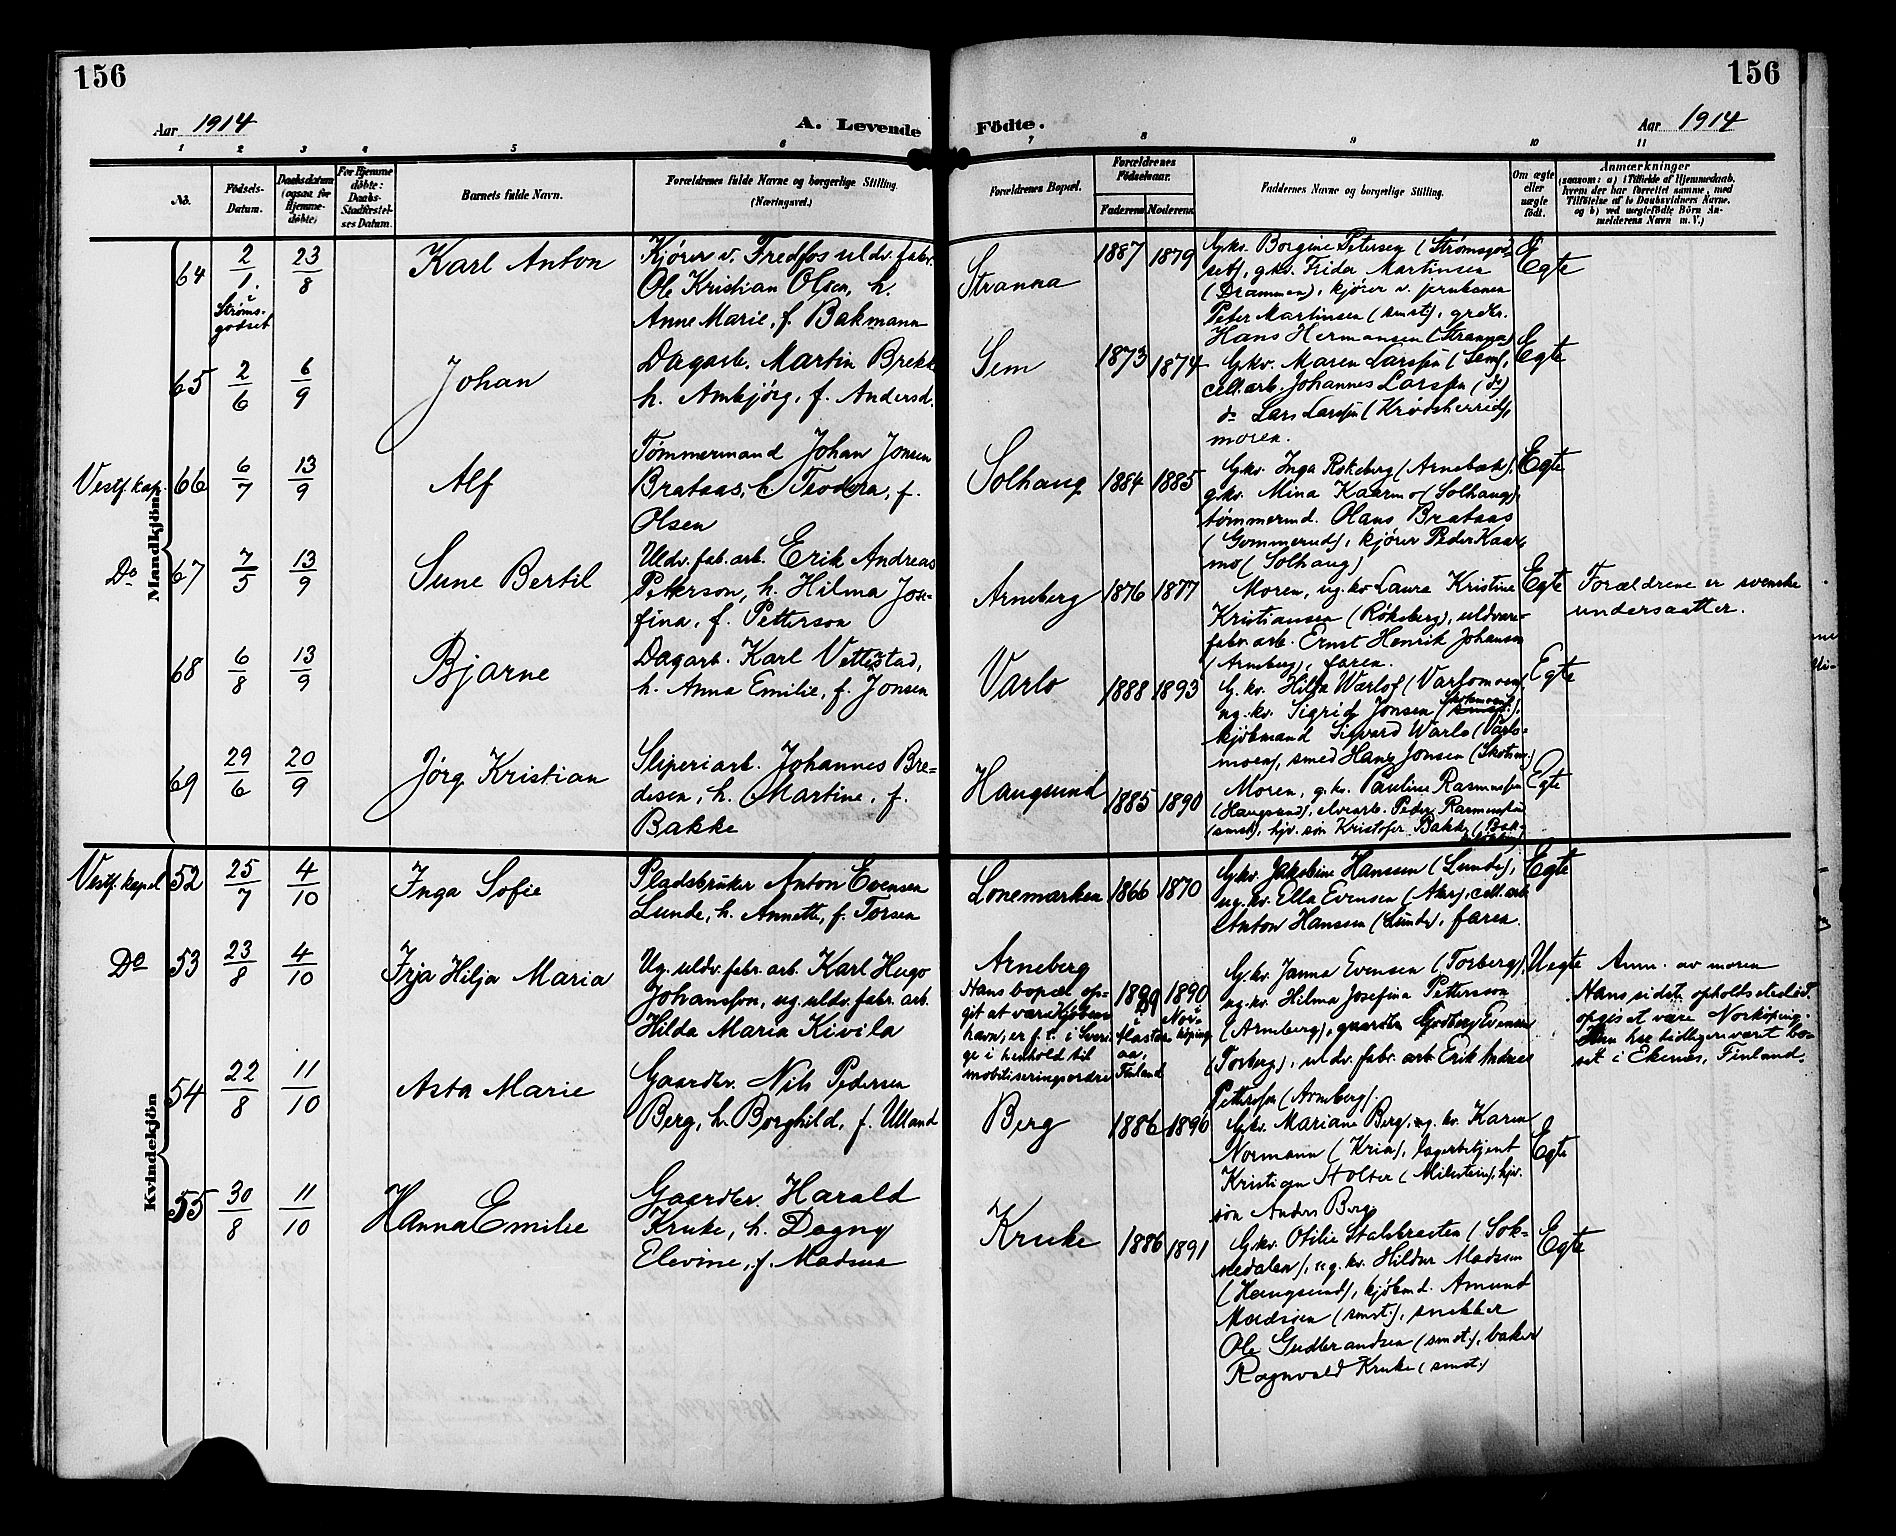 156
156
Aar 1914
A. Levende
Födte.
Aar 1914
1 2 3 4 5 6 7 8 9 10 11
No.
Födsels-
Datum.
Daabsdatum
(ogsaa for
Hjemme-
döbte)
For Hjemme
döbte:
Daabs-
Stadfæstel-
ses Datum.
Barnets fulde Navn.
Forældrenes fulde Navne og borgerlige Stilling.
(Næringsvei.)
Forældrenes Bopæl.
Forældrenes
Födselsaar.
Faderens
Moderens
Faddernes Navne og borgerlige Stilling.
Om ægte
eller
uægte
födt.
Anmærkninger
(saasom: a) i Tilfælde af Hjemmedaab.
hvem der har forrettet samme, med
Tilföielse af to Daabsvidners Navne.
og b) ved uægtefödte Börn An-
melderens Navn m. V.)
Mandkjön
64
2/1.
i
Strøms-
godset
23/8
Karl Anton
Kjører v. Fredfos uldv. fabr.
Ole Kristian Olsen, h.
Anne Marie, f. Bakmann
Stranna
1887
1879
Gkv. Borgine Petersen (Strømsgod-
set), gkv. Frida Martinsen
(Drammen), kjører v.
Peter Martinsen (smst), grdbr.
Hans Hermansen (Stranna)
Egte
65
2/6
6/9
Johan
Dagarb. Martin Brekke
h. Ambjørg, f. Andersd.
Sem
1873
1874
Gkv. Maren Larssen (Sem),
cell. arb. Johannes Larssen (do)
do Lars Larssen (Krødsherred),
moren.
Egte
Vestf. kap.
66
6/7
13/9
Alf
Tømmermand Johan Jonsen
Brataas, h. Teodora, f.
Olsen
Solhaug
1884
1885
Gkv. Inga Røkeberg (Arnebæk),
gkv. Mina Kaarmo (Solhaug),
tømmermd. Olans Brataas
(Gommerud), kjører Peder Kaar-
mo (Solhaug)
Egte
Do
67
7/5
13/9
Sune Bertil
Uldv. fab. arb. Erik Andreas
Petterson, h. Hilma Jos-
fina, f. Petterson
Arneberg
1876
1877
Moren, ug. kv Laura Kristine
Kristiansen (Røkeberg), uldvare-
fabr. arb. Ernst Henrik Johansen
(Arneberg), faren.
Egte
Forældrene er svenske
undersaatter.
68
6/8
13/9
Bjarne
Dagarb. Karl Vettestad,
h. Anna Emilie, f. Jonsen
Varlo
1888
1893
G. kv. Hilda Warlo (Varlomoen)
ug. kv. Sigrid Jonsen (Skotemoen),
kjøbmand Sigvard Warlo (Varlo-
moen), smed Hans Jonsen (Skotem.)
Egte
69
29/6
20/9
Jørg Kristian
Sliperiarb. Johannes Bre-
desen, h. Martine, f.
Bakke
Haugsund
1885
1890
Moren, g. kv. Pauline Rasmussen
(Haugsund), elvearb. Peder Rasmussen
(smst), hjv. søn Kristofer Bakke
Egte
Kvindekjön
Vestf. kapel
52
25/7
4/10
Inga Sofie
Pladsbruker Anton Evensen
Lunde, h. Annette, f. Torsen
Lonemarken
1866
1870
Gkv. Jakobine Hansen (Lunde),
ug. kv. Ella Evensen (Aker), cell. arb
Anton Hanssen (Lunde), faren.
Egte
Do
53
23/8
4/10
Irja Hilja Maria
Ug. uldv. fabr. arb. Karl Hugo
Johansson, ug. uldv. fabr. arb.
Hilda Maria Kivila
Arneberg
Hans bopæl op-
git at være Kjøben-
havn, er f. t. i Sveri-
ge i henhold til
mobiliseringsordre
1889
1890
i
Nor-
køping
Finland
G. kv. Janna Evensen (Torberg),
ug. kv. Hilma Josefina Pettersson
(Arneberg), gaardbr. Godberg Evensen
(Torberg), uldv. fabr. arb. Erik Andreas
Petterson (Arneberg).
Uegte
Anm. av moren
Hans sidste opholdssted
opgis at være Norkøping.
Hun har tidligere vært bo-
sat i Ekenes, Finland.
54
22/8
11/10
Asta Marie
Gaardbr. Nils Pedersen
Berg, h. Borghild, f. Ulland
Berg
1886
1896
Gkv. Mariane Berg, ug. kv. Karen
Normann (Kria), lagerbetjent
Kristian Holter (Milestein), hjv.
søn Anders Berg
Egte
55
30/8
11/10
Hanna Emilie
Gaardbr. Harald
Kruke, h. Dagny
Elevine, f. Madsen
Kruke
1886
1891
Gkv. Otilie Stalsbraaten (Sok-
nedalen), ug. kv. Hildur Madsen
(Haugsund), kjøbmd. Amund
Madsen (smst.), snekker
Ole Gudbrandsen (smst.), baker
Ragnvald Kruke (smst.)
Egte